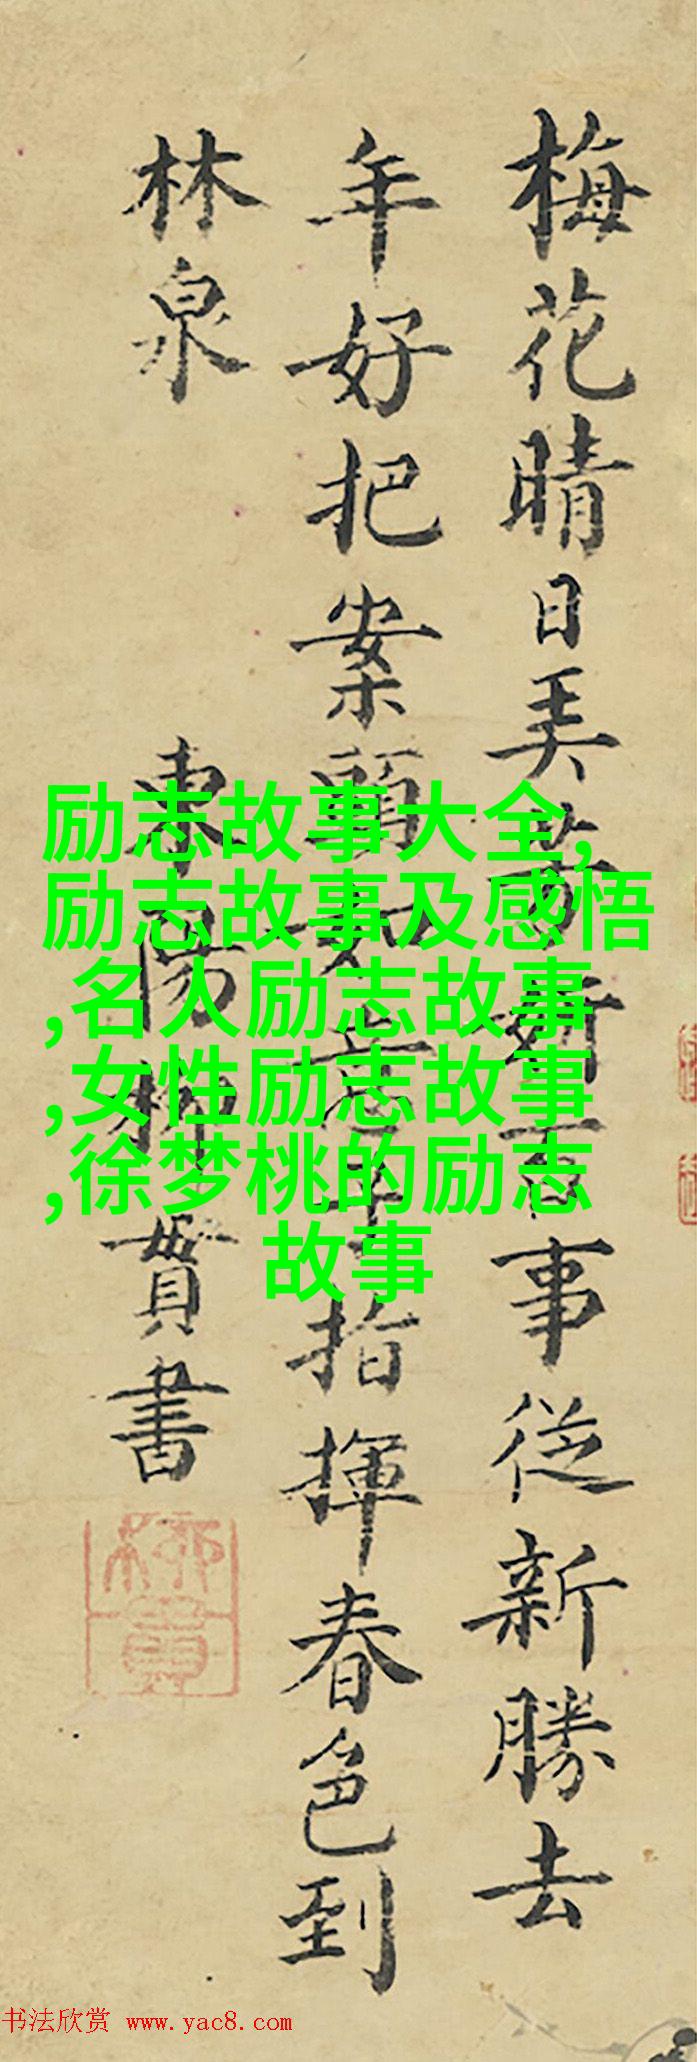 梅花晴日美芳新百事從新勝去
年好把案頭如意手指揮春色到
林泉
東陽柳貫書
柳貫
励志故事大全,
励志故事及感悟
,名人励志故事
,女性励志故事
,徐梦桃的励志
故事
书法欣赏 www.yac8.com